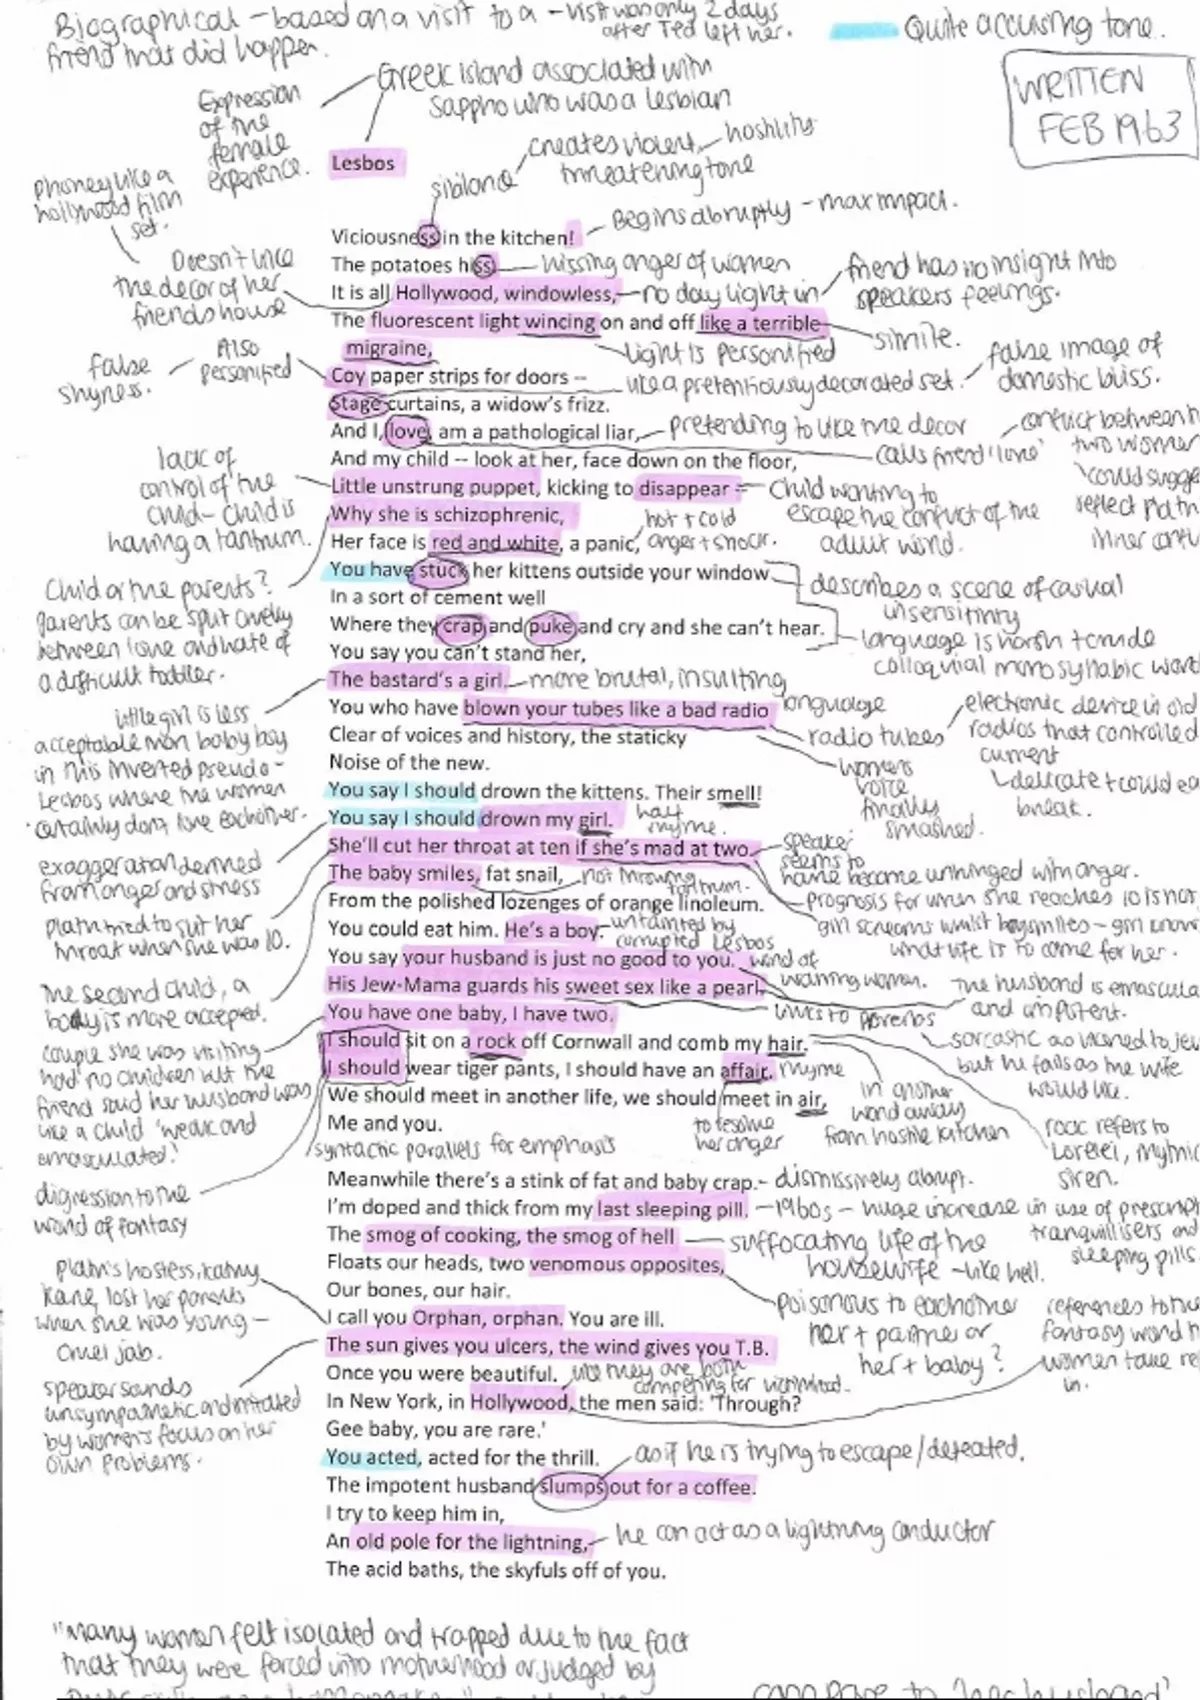 Biographical - based on a visit to a - visit was only 2 days
friend that did happen. after Ted left her.
Quite accusing tone.
WRITTEN
FEB 1963
Greek Island associated with
Sappho who was a lesbian
Expression
of the
female
experience.
Lesbos
creates violent, hostility
threatening tone
sibilance
phoney like a
hollywood film
set.
Begins abruptly - max impact.
Viciousness in the kitchen!
The potatoes hiss
hissing anger of women
It is all Hollywood, windowless,
no daylight in
friend has no insight into
speakers feelings.
Doesn't like
the decor of her
friends house
The fluorescent light wincing on and off like a terrible
migraine,
light is personified
simile.
Also
personified
false
shyness.
Coy paper strips for doors --
like a pretentiously decorated set.
false image of
domestic bliss.
Stage curtains, a widow's frizz.
And I, love, am a pathological liar,
pretending to like the decor
calls friend 'love'
conflict between
two women
could
reflect
inner
And my child -- look at her, face down on the floor,
Little unstrung puppet, kicking to disappear --
lack of
control of the
child - child is
having a tantrum.
Child wanting to
escape the conflict of the
adult world.
Why she is schizophrenic,
Her face is red and white, a panic,
hot + cold
anger + shock.
You have stuck her kittens outside your window
In a sort of cement well
describes a scene of casual
insensitivity
Where they crap and puke and cry and she can't hear.
language is harsh + crude
colloquial monosyllabic
Child or the parents?
parents can be split
between love and hate of
a difficult toddler.
You say you can't stand her,
The bastard's a girl.
more brutal, insulting
language
You who have blown your tubes like a bad radio
radio tubes
electronic device in old
radios that controlled
current
delicate + could
break.
Clear of voices and history, the staticky
Noise of the new.
womens
voice
finally
smashed.
little girl is less
acceptable than baby boy
in this inverted pseudo -
Lesbos where the women
certainly don't love each other.
You say I should drown the kittens. Their smell!
You say I should drown my girl.
half
rhyme.
She'll cut her throat at ten if she's mad at two.
speaker
seems to
have become unhinged with anger.
exaggeration derived
from anger and stress
plath tried to cut her
throat when she was 10.
The baby smiles, fat snail,
not throwing
tantrum.
prognosis for when she reaches 10 is not
girl screams whilst boy smiles - girl
what life is to come for her.
From the polished lozenges of orange linoleum.
You could eat him. He's a boy.
untainted by
corrupted Lesbos
You say your husband is just no good to you.
His Jew-Mama guards his sweet sex like a pearl.
links to proverbs
The husband is
and impotent.
the second child, a
boy is more accepted.
You have one baby, I have two.
I should sit on a rock off Cornwall and comb my hair.
I should wear tiger pants, I should have an affair.
rhyme
We should meet in another life, we should meet in air,
Me and you.
couple she was visiting
had no children but the
friend said her husband was
like a child 'weak and
emasculated.'
to resolve
her anger
in another
world away
from hostile kitchen
rock refers to
Lorelei,
siren.
syntactic parallels for emphasis
digression to the
world of fantasy
Meanwhile there's a stink of fat and baby crap.
dismissively abrupt.
I'm doped and thick from my last sleeping pill.
1960s - huge increase in use of
tranquillisers
sleeping pills.
The smog of cooking, the smog of hell
suffocating life of the
housewife - like hell.
Floats our heads, two venomous opposites,
Our bones, our hair.
poisonous to eachother
her + partner or
her + baby?
I call you Orphan, orphan. You are ill.
plath's hostess, kathy
kane, lost her parents
when she was young -
cruel jab.
The sun gives you ulcers, the wind gives you T.B.
Once you were beautiful.
like they are both
competing for
In New York, in Hollywood, the men said: 'Through?
Gee baby, you are rare.'
references to the
fantasy world
women take
in.
speaker sounds
unsympathetic and irritated
by women's focus on her
own problems.
You acted, acted for the thrill.
as if he is trying to escape/defeated.
The impotent husband slumps out for a coffee.
I try to keep him in,
An old pole for the lightning,
he can act as a lightning conductor
The acid baths, the skyfuls off of you.
"Many women felt isolated and trapped due to the fact
that they were forced into motherhood or judged by
compare to